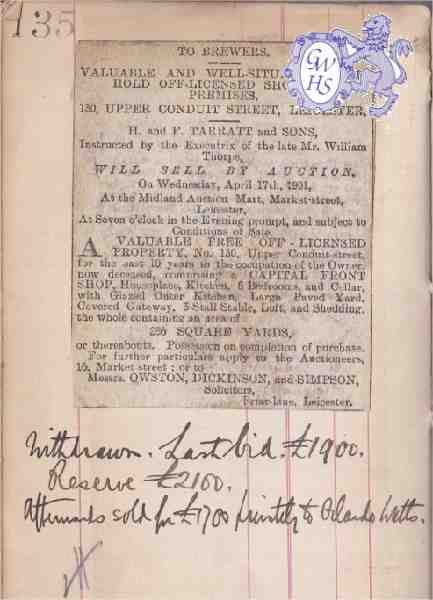 135
GWHS
TO BREWERS.
VALUABLE AND WELL-SITU
HOLD OFF-LICENSED SHO
PREMISES,
130, UPPER CONDUIT STREET, LEICESTER.
H. and F. TARRATT and SONS,
Instructed by the Executrix of the late Mr. William
Thorpe,
WILL SELL BY AUCTION,
On Wednesday, April 17th, 1901,
At the Midland Auction Mart, Market-street,
Leicester,
At Seven o'clock in the Evening prompt, and subject to
Conditions of Sale.
A VALUABLE FREE OFF-LICENSED
PROPERTY, No. 130, Upper Conduit-street,
for the past 10 years in the occupation of the Owner,
now deceased, comprising a CAPITAL FRONT
SHOP, Houseplace, Kitchen, 5 Bedrooms, and Cellar,
with Glazed Outer Kitchen, Large Paved Yard,
Covered Gateway, 3-Stall Stable, Loft, and Shedding,
the whole containing an area of
226 SQUARE YARDS,
or thereabouts. Possession on completion of purchase.
For further particulars apply to the Auctioneers,
16, Market street; or to
Messrs. OWSTON, DICKINSON, and SIMPSON,
Solicitors,
Friar-lane, Leicester.
Withdrawn. Last bid. £1900.
Reserve £2100.
Afterwards sold for £1700 privately to Orlando Watts.